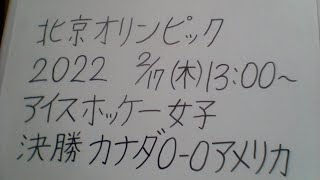 北京オリンピック
2022 2/17(木)13:00～
アイスホッケー女子
決勝 カナダ0-0アメリカ